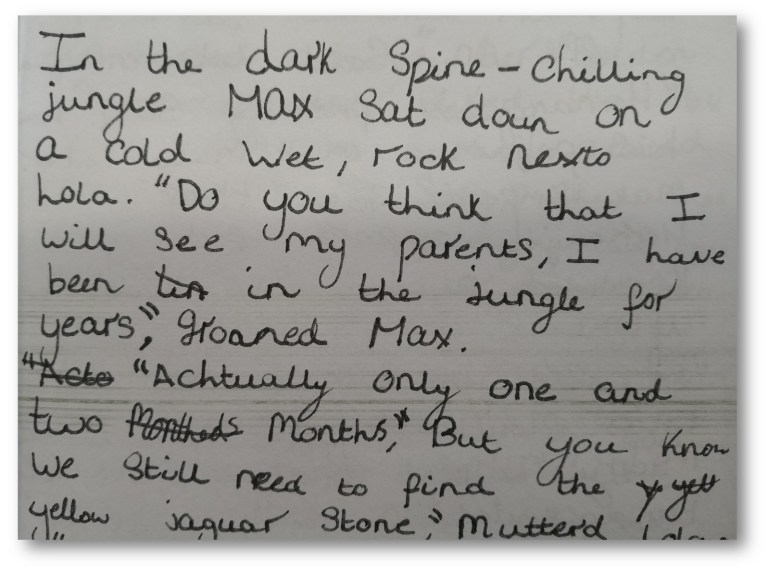 In the dark Spine-Chilling
jungle Max Sat down on
a Cold Wet, rock nexto
Lola. "Do you think that I
will See my parents, I have
been in the jungle for
years," groaned Max.
"Achtually only one and
two Months," "But you know
we Still need to find the
yellow jaguar Stone," Mutterd